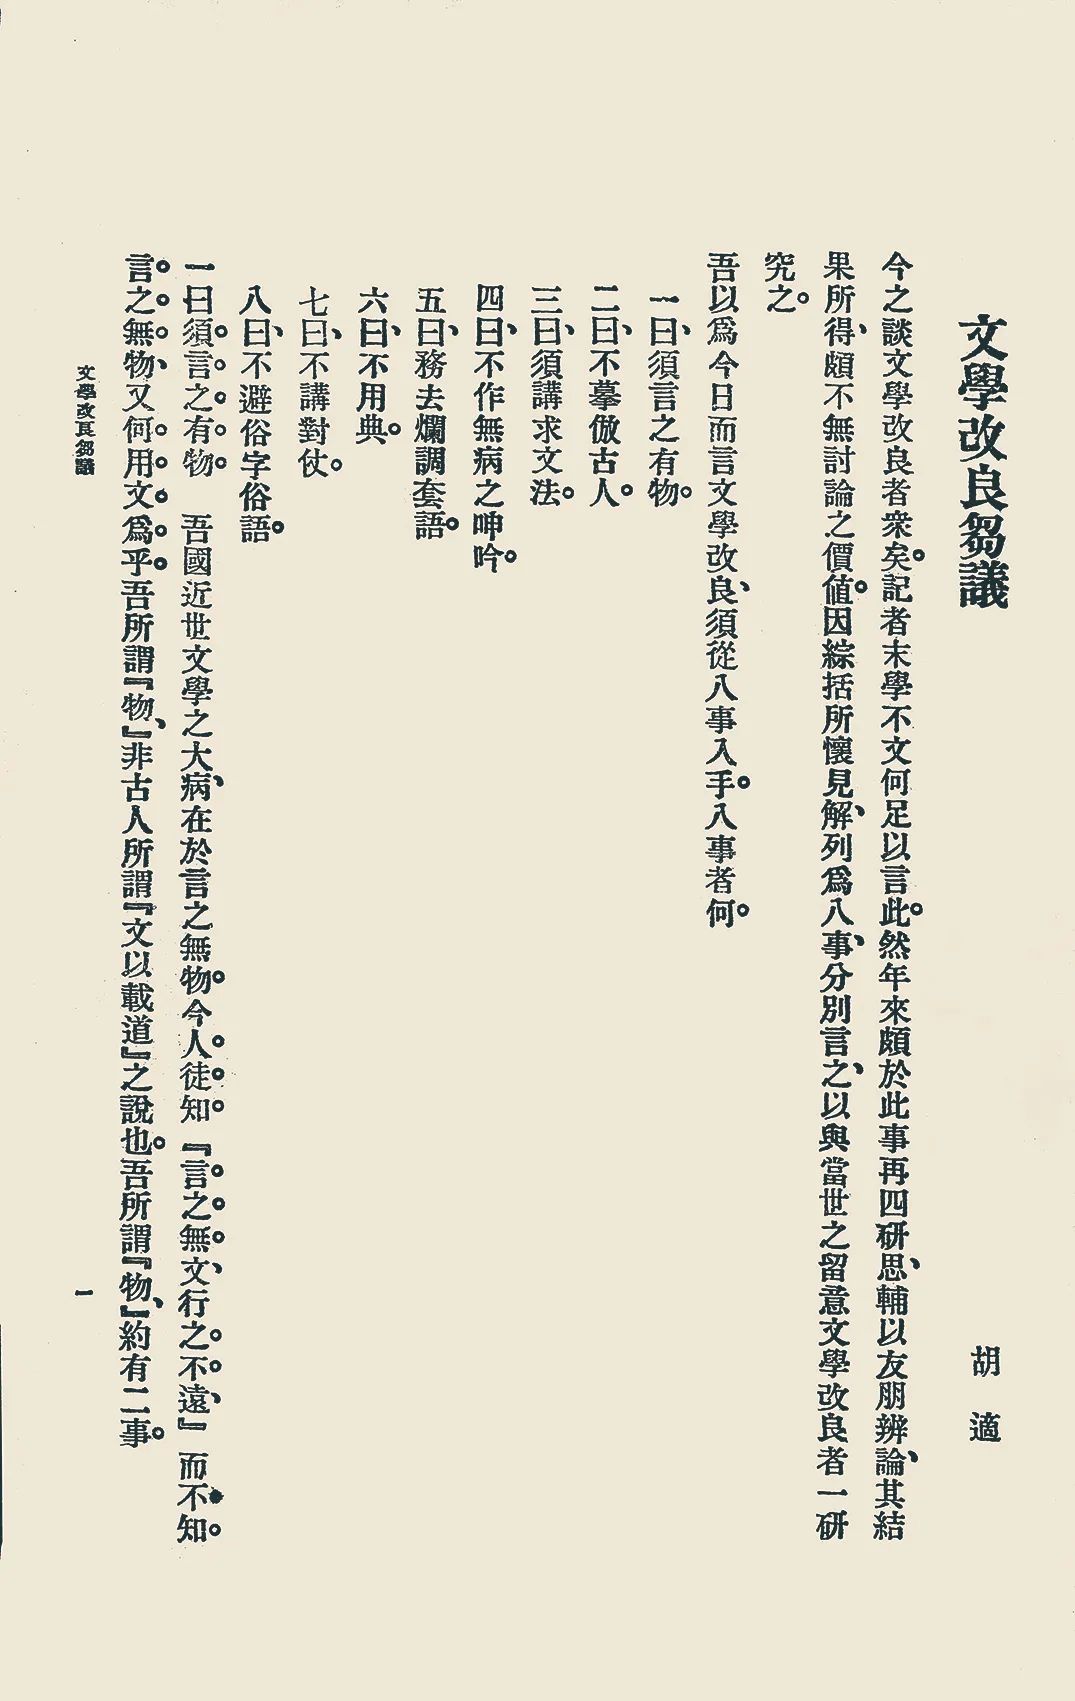 文學改良芻議
胡適
今之談文學改良者衆矣。記者末學不文何足以言此。然年來頗於此事再四研思、輔以友朋辨論、其結
果所得、頗不無討論之價値。因綜括所懷見解、列爲八事、分別言之、以與當世之留意文學改良者一研
究之。
吾以爲今日而言文學改良、須從八事入手。八事者何。
一曰、須言之有物。
二曰、不摹倣古人。
三曰、須講求文法。
四曰、不作無病之呻吟。
五曰、務去爛調套語。
六曰、不用典。
七曰、不講對仗。
八曰、不避俗字俗語。
一曰須言之有物　吾國近世文學之大病、在於言之無物。今人徒知『言之無文、行之不遠、』而不知
言之無物、又何用文爲乎。吾所謂『物、』非古人所謂『文以載道』之說也。吾所謂『物、』約有二事。
文學改良芻議
一